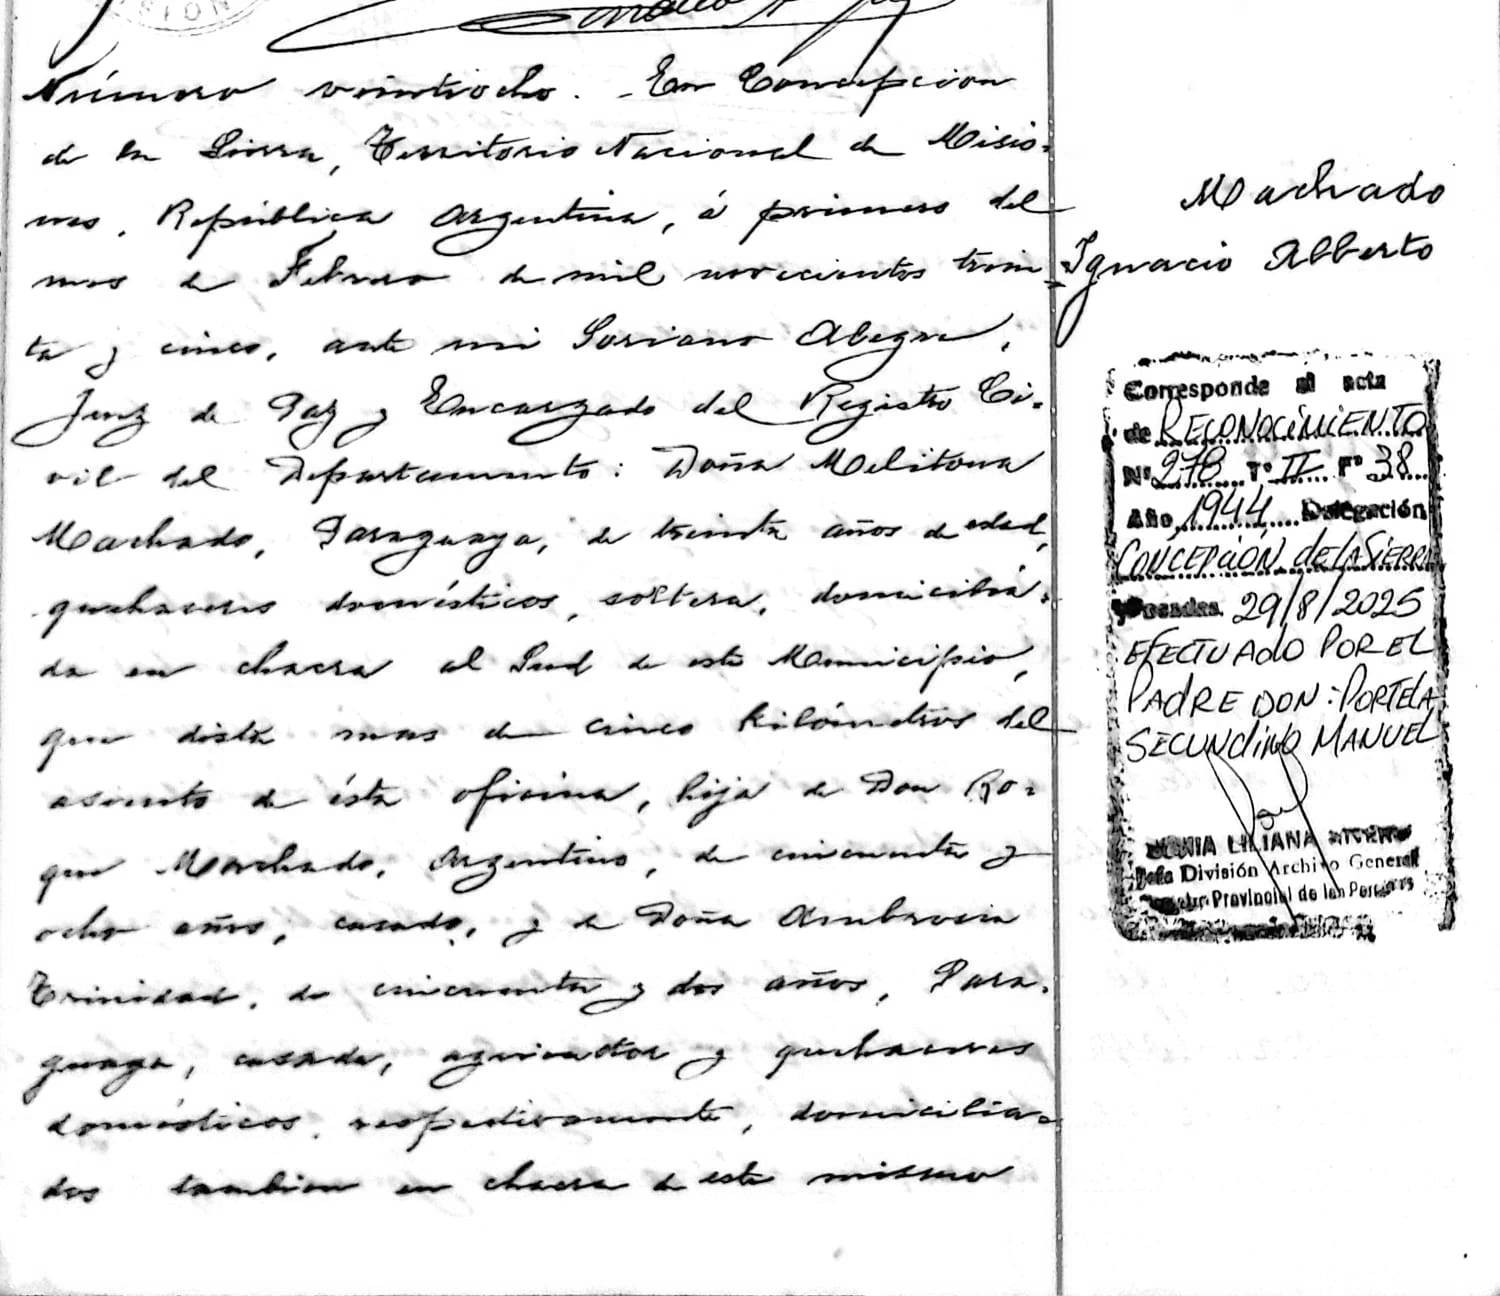 Número veintiocho. - En Concepcion
de la Sierra, Territorio Nacional de Misio-
nes, República Argentina, á primero del
mes de Febrero de mil novecientos trein-
ta y cinco, ante mi Soriano Alegre,
Juez de Paz y Encargado del Registro Ci-
vil del Departamento: Doña Melitona
Machado, Paraguaya, de treinta años de edad,
quehaceres domésticos, soltera, domicilia-
da en chacra al Sud de este Municipio,
que dista mas de cinco kilómetros del
asiento de ésta oficina, hija de Don Ro-
que Machado, Argentino, de cincuenta y
ocho años, casado, y de Doña Ambrocia
Trinidad, de cincuenta y dos años, Para-
guaya, casada, agricultor y quehaceres
domésticos, respectivamente, domicilia-
dos tambien en chacra de este mismo
Machado
Ignacio Alberto
Corresponde al acta
de RECONOCIMIENTO
Nº 278 Tº II Fº 38
Año 1944 Delegación
CONCEPCIÓN de LA SIERRA
Posadas 29/8/2025
EFECTUADO POR EL
PADRE DON: PORTELA
SECUNDINO MANUEL
SONIA LILIANA
Jefe División Archivo General
Provincial de las Personas